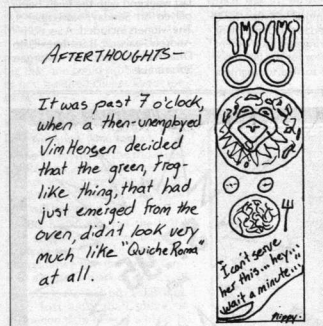 AFTERTHOUGHTS—
It was past 7 o'clock,
when a then-unemployed
Jim Hensen decided
that the green, frog-
like thing, that had
just emerged from the
oven, didn't look very
much like "Quiche Roma"
at all.
"I can't serve
her this... hey...
wait a minute..."